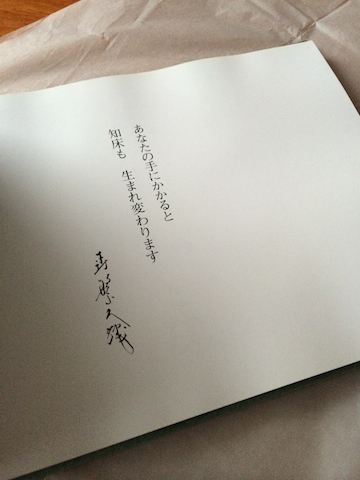 あなたの手にかかると
知床も 生まれ変わります